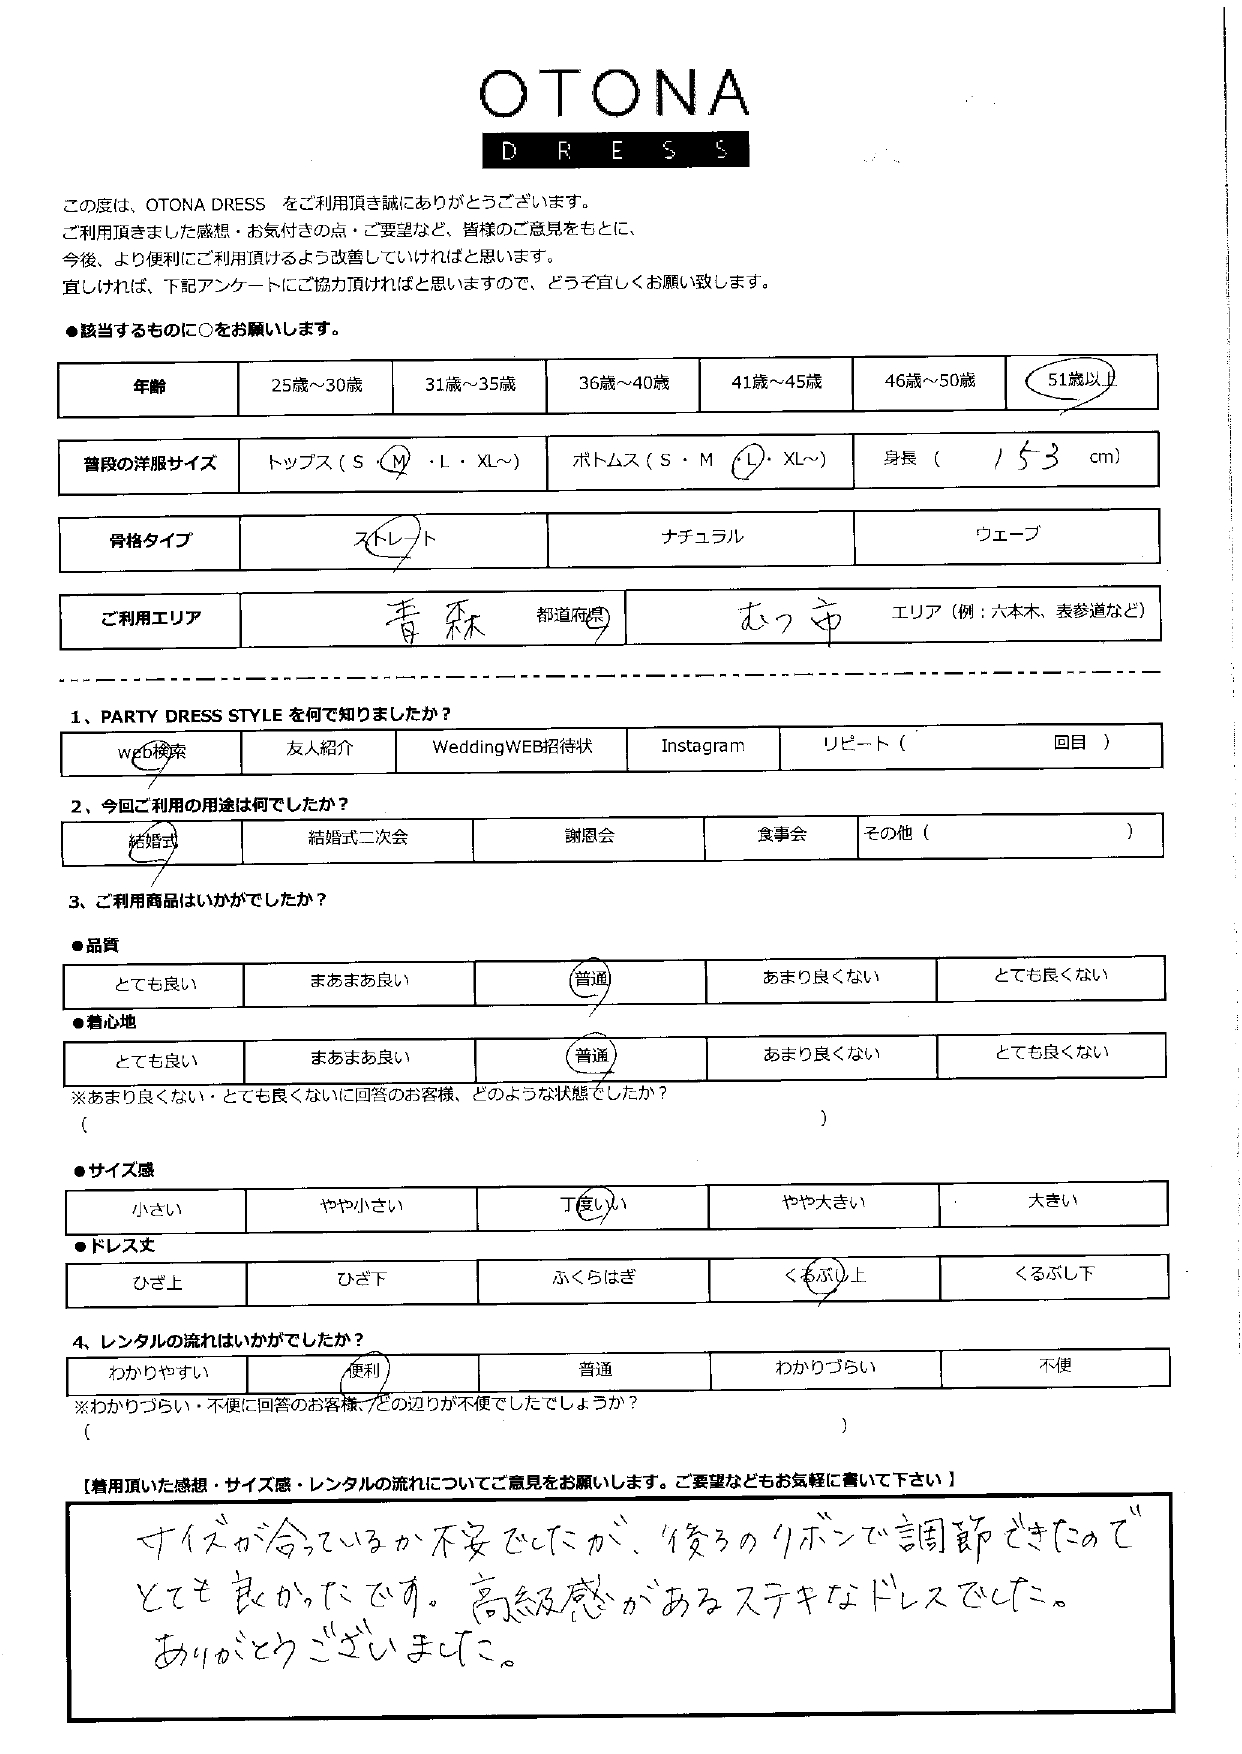 OTONA
DRESS
この度は、OTONA DRESS をご利用頂き誠にありがとうございます。
ご利用頂きました感想・お気付きの点・ご要望など、皆様のご意見をもとに、
今後、より便利にご利用頂けるよう改善していければと思います。
宜しければ、下記アンケートにご協力頂ければと思いますので、どうぞ宜しくお願い致します。
●該当するものに○をお願いします。
年齢 25歳～30歳 31歳～35歳 36歳～40歳 41歳～45歳 46歳～50歳 51歳以上
普段の洋服サイズ トップス（S ・M ・L ・ XL～） ボトムス（S ・ M ・L・ XL～） 身長（ 153 cm）
骨格タイプ ストレート ナチュラル ウェーブ
ご利用エリア 青森 都道府県 むつ市 エリア（例：六本木、表参道など）
1、PARTY DRESS STYLE を何で知りましたか？
web検索 友人紹介 WeddingWEB招待状 Instagram リピート（ 回目 ）
2、今回ご利用の用途は何でしたか？
結婚式 結婚式二次会 謝恩会 食事会 その他（ ）
3、ご利用商品はいかがでしたか？
●品質
とても良い まあまあ良い 普通 あまり良くない とても良くない
●着心地
とても良い まあまあ良い 普通 あまり良くない とても良くない
※あまり良くない・とても良くないに回答のお客様、どのような状態でしたか？
（ ）
●サイズ感
小さい やや小さい 丁度いい やや大きい 大きい
●ドレス丈
ひざ上 ひざ下 ふくらはぎ くるぶし上 くるぶし下
4、レンタルの流れはいかがでしたか？
わかりやすい 便利 普通 わかりづらい 不便
※わかりづらい・不便に回答のお客様、どの辺りが不便でしたでしょうか？
（ ）
【着用頂いた感想・サイズ感・レンタルの流れについてご意見をお願いします。ご要望などもお気軽に書いて下さい】
サイズが合っているか不安でしたが、後ろのリボンで調節できたので
とても良かったです。高級感があるステキなドレスでした。
ありがとうございました。